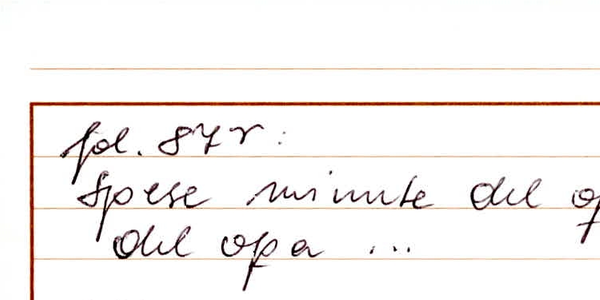 fol. 87r:
Spese minute del
del opa ...